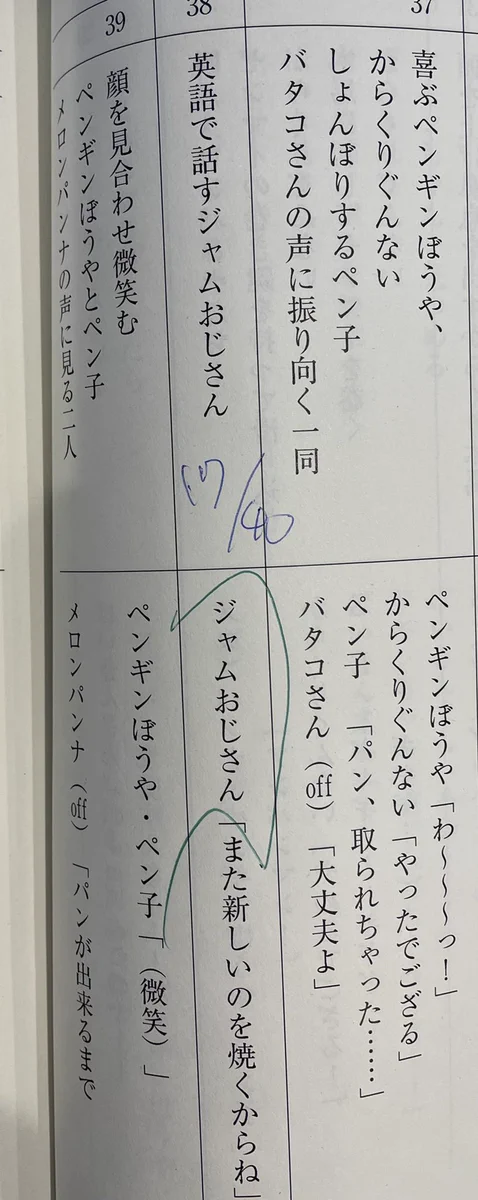 37
喜ぶペンギンぼうや、
からくりぐんない
しょんぼりするペン子
バタコさんの声に振り向く一同
ペンギンぼうや「わ〜〜〜っ！」
からくりぐんない「やったでござる」
ペン子「パン、取られちゃった……」
バタコさん（off）「大丈夫よ」
38
英語で話すジャムおじさん
ジャムおじさん「また新しいのを焼くからね」
39
顔を見合わせ微笑む
ペンギンぼうやとペン子
メロンパンナの声に見る二人
ペンギンぼうや・ペン子「（微笑）」
メロンパンナ（off）「パンが出来るまで